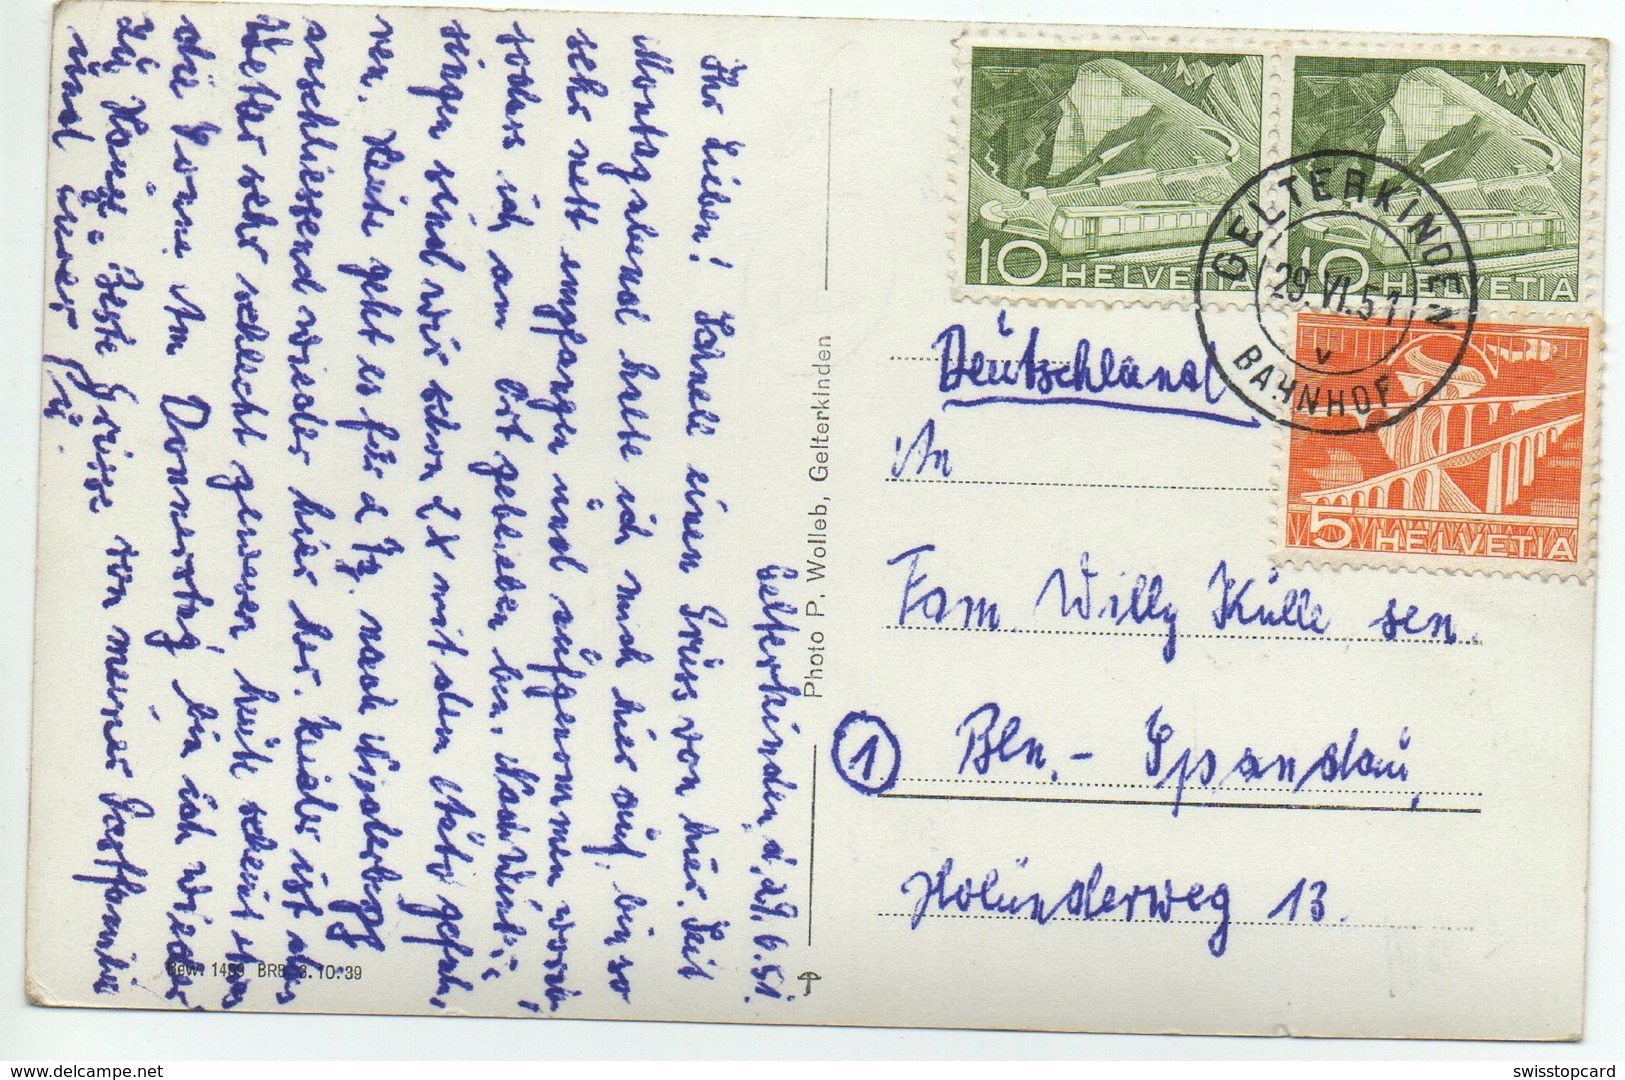 Gelterkinden, d. 29.6.51.
Ihr Lieben! Schnell einen Gruss von hier. Seit
Montagabend halte ich mich hier auf, bin so
sehr nett empfangen und aufgenommen worden,
sodass ich am Ort geblieben bin. Nach
singen sind wir schon 2x mit dem Auto gefah,
ren. Heute geht es für 2 Tg. nach
anschliessend wieder hier her. Leider ist das
Wetter sehr schlecht gewesen heute scheint etwas
die Sonne. Am Donnerstag bin ich wieder
zu Hause. Beste Grüsse von meiner Gastfamilie
und Eurer
Photo P. Wolleb, Gelterkinden
Bew. 1459 BRB 3.10.39
10 HELVETIA
10 HELVETIA
5 HELVETIA
GELTERKINDEN
29.VI.51
V
BAHNHOF
Deutschland
An
Fam. Willy Külle sen.
1 Bln.- Spandau,
Holunderweg 13.
www.delcampe.net
swisstopcard